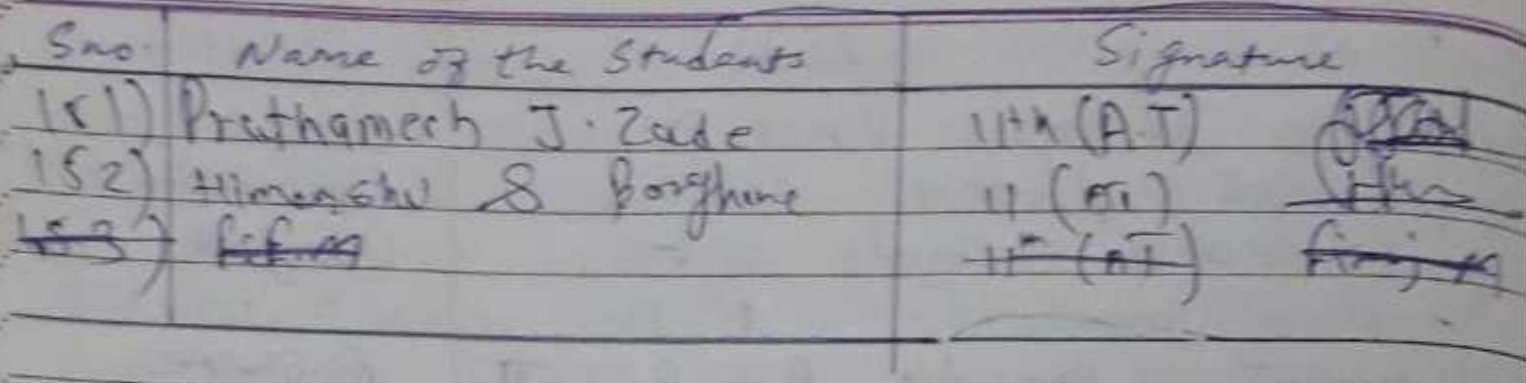 Sno. Name of the Students Signature
151) Prathamesh J. Zade 11th (A.T)
152) Himanshu S Borghane 11 (AT)
153) 11th (AT)